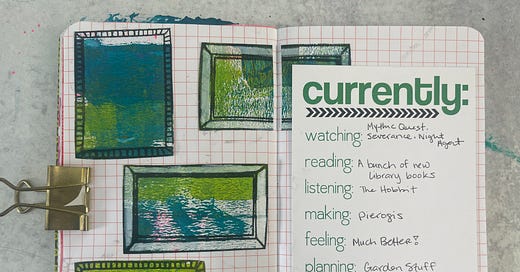 currently:
watching: Mythic Quest.
Severance. Night
Agent
reading: A bunch of new
library books
listening: The Hobbit
making: Pierogis
feeling: Much Better!
planning: Garden Stuff